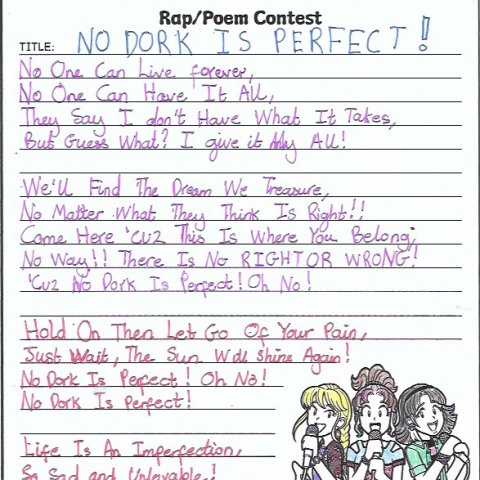 Rap/Poem Contest
TITLE: NO DORK IS PERFECT!
No One Can Live forever,
No One Can Have It All,
They Say I don't Have What It Takes,
But Guess What? I give it My All!
We'll Find The Dream We Treasure,
No Matter What They Think Is Right!!
Come Here 'Cuz This Is Where You Belong,
No Way!! There Is No RIGHT OR WRONG!
'Cuz No Dork Is Perfect! Oh No!
Hold On Then Let Go Of Your Pain,
Just Wait, The Sun Will Shine Again!
No Dork Is Perfect! Oh No!
No Dork Is Perfect!
Life Is An Imperfection,
So Sad and Unlovable,!